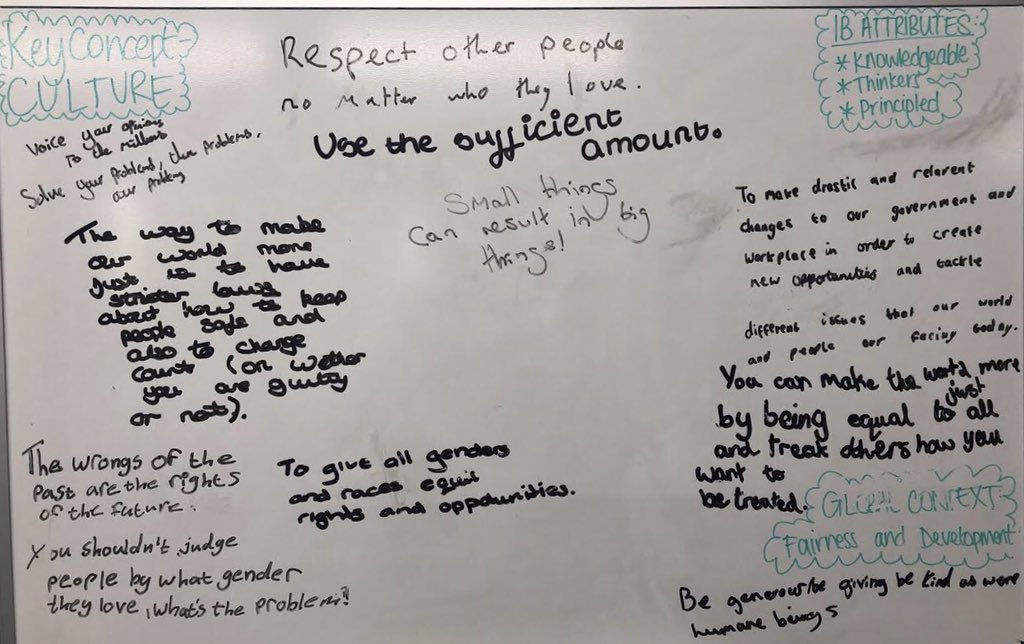 Key Concept
CULTURE
Respect other people
no matter who they love.
IB ATTRIBUTES:
*Knowledgeable
*Thinkers
*Principled
Voice your opinions
to the millions
Solve your problems, their problems,
our problems
Use the sufficient
amount.
Small things
Can result in big
things!
To make drastic and relavent
changes to our government and
workplace in order to create
new opportunities and tackle
different issues that our world
and people our facing today.
The way to make
our world more
just is to have
stricter laws
about how to keep
people safe and
also to change
court (on wether
you are guilty
or not).
You can make the world more
just
by being equal to all
and treat others how you
want to
be treated.
The wrongs of the
past are the rights
of the future.
To give all genders
and races equil
rights and oppotunities.
GLOBAL CONTEXT:
Fairness and Development
You shouldn't judge
people by what gender
they love, what's the problem?!
Be generous be giving be kind as were
humane beings